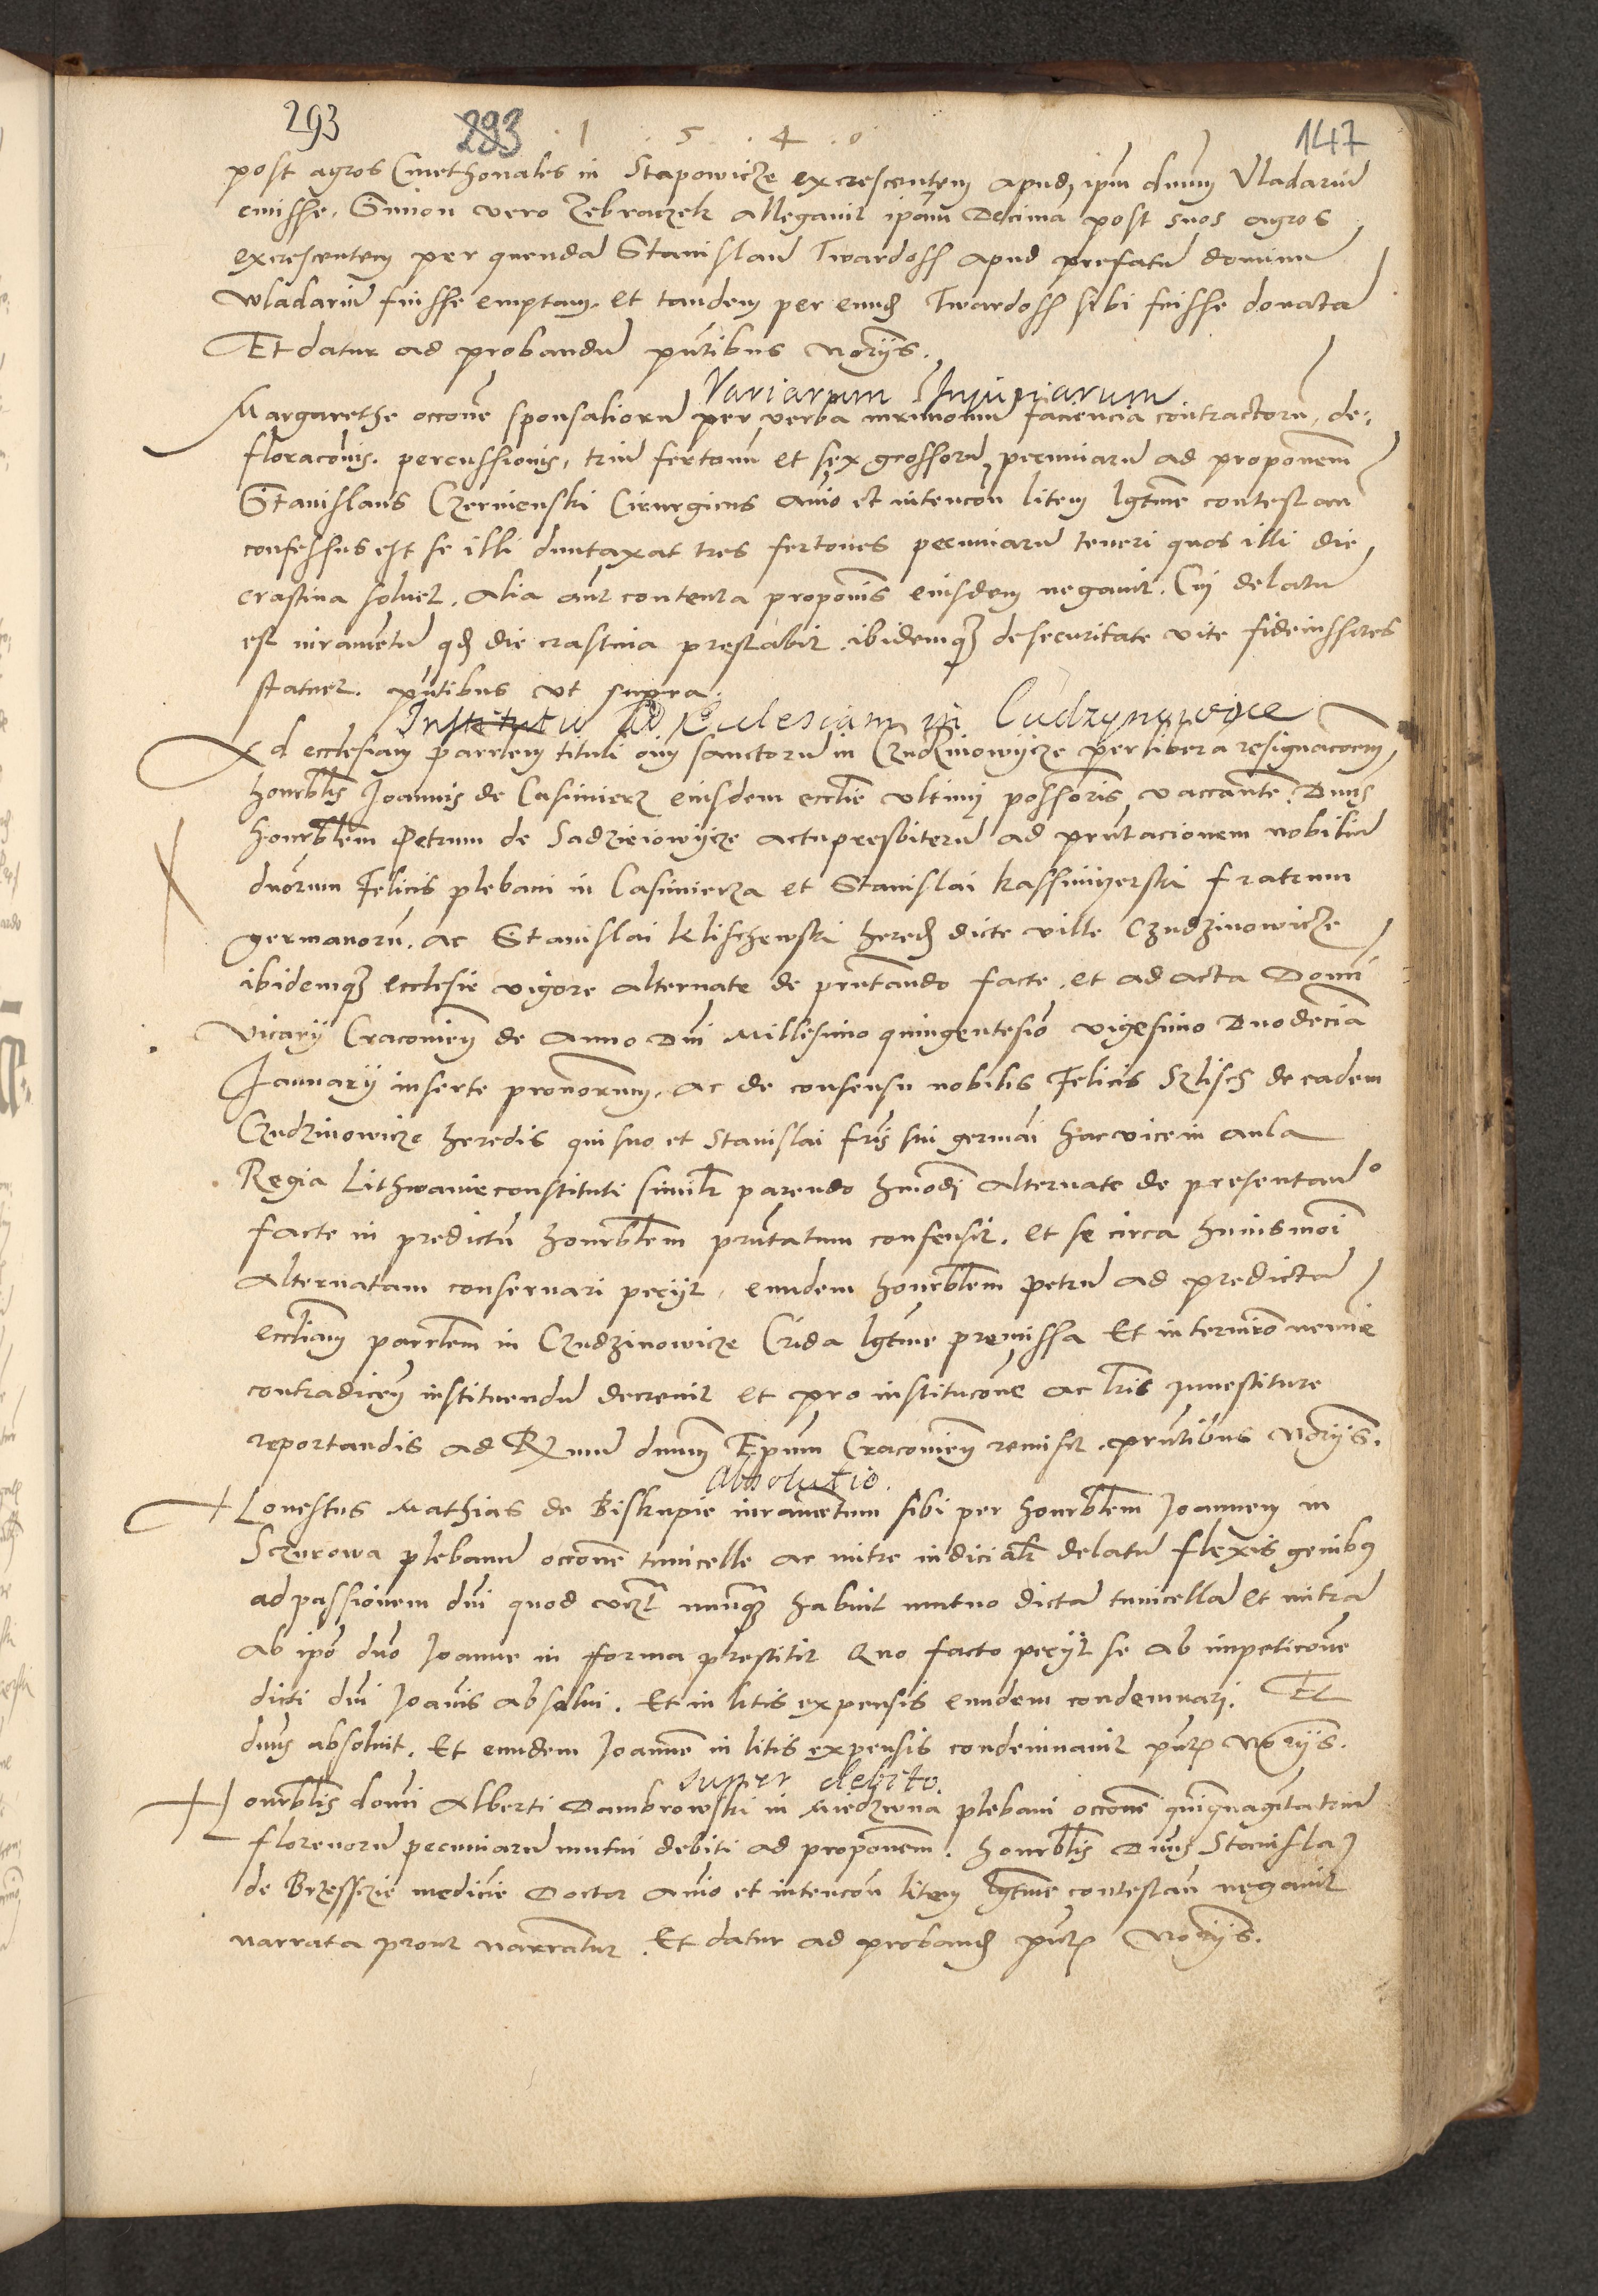 293 293 · 1 · 5 · 4 · 0 147
post agros Cmethonales in Stapowicze excrescentem apud ipm dnum Vladariu
emisse. Simon vero Zebraczek allegavit ipam Decima post suos agros
excrescentem per quenda Stanislau Twardoss apud prefatu dominu
wladariu fuisse emptam. et tandem per eund Twardoss sibi fuisse donata
Et datur ad probandu pntibus Noriis.
Variarum Iniuriarum
Margarethe occone sponsalioru per verba mrimoniu faciencia contractoru, de:
floraconis. percussionis, triu fertonu et sex grossoru pecuniaru ad proponem
Stanislaus Czernienski Cirurgicus anio et intencon litem lgtime contestan
confessus est se illi duntaxat tres fertones pecuniaru teneri quos illi die
crastina solvet. Alia aut contenta proponis eiusdem negavit. Cui delatu
est iuramentu qd die crastina prestabit. ibidemq de securitate vite fideiussores
statuet. pntibus ut supra.
Institutio Ad Eclesiam in Cudzynowice
Ad ecclesiam parrlem tituli oim sanctoru in Czudzinowycze per libera resignacoem
honrblis Joannis de Casimierz eiusdem ecclie ultimi possoris vaccante. Dnus
honrblem Petrum de Sadzieiowycze actu presbiteru ad pntacionem nobiliu
dnorum Felicis plebani in Casimierza et Stanislai Kassimyerski fratrum
germanoru. ac Stanislai Klischewski hered dicte ville Czudzinowicze
ibidemq ecclesie vigore alternate de pntando facte. et ad acta Domi
Vicarii Cracovien de Anno Dni Millesimo quingentesio vigesimo Duodecia
Januarii inserte pronorum. ac de consensu nobilis Felicis Szlisch de eadem
Czudzinowicze heredis qui suo et Stanislai fris sui germani hac vice in aula
Regia Lithwanie constituti similr parendo hmodi alternate de presentando
facte in predictu honrblem pntatum consensit. et se circa huiusmoi
Alternatam conservari peciit, eundem honrblem Petru ad predicta
eccliam parrlem in Czudzinowicze Crida lgtime premissa Et in termino nemine
contradicen instituendu decrevit et pro institucone ac lris investiture
reportandis ad Rmu dnum Epum Cracovien remisit. pntibus Noriis.
Absolutio.
Honestus Mathias de Biskupie iuramentum sibi per honrblem Joannem in
Sczurowa plebanu occone tunicelle ac mitre iudicialr delatu flexis genibus
ad passionem dni quod videlicet nunq habuit mutuo dicta tunicella et mitra
ab ipo dno Joanne in forma prestitit Quo facto peciit se ab impeticone
dicti dni Joanis absolvi. Et in litis expensis eundem condemnari. Et
dnus absolvit. Et eundem Joanne in litis expensis condemnavit pntibus Noriis.
super debito.
Honrblis domi Alberti Dambrowski in Miedzwna plebani occone quinquaginta triu
florenoru pecuniaru mutui debiti ad proponem. honrblis Dnus Stanislaus
de Brzessczie medicie Doctor anio et intencon litem lgtime contestan negavit
narrata prout narrantur. Et datur ad proband pntibus Noriis.